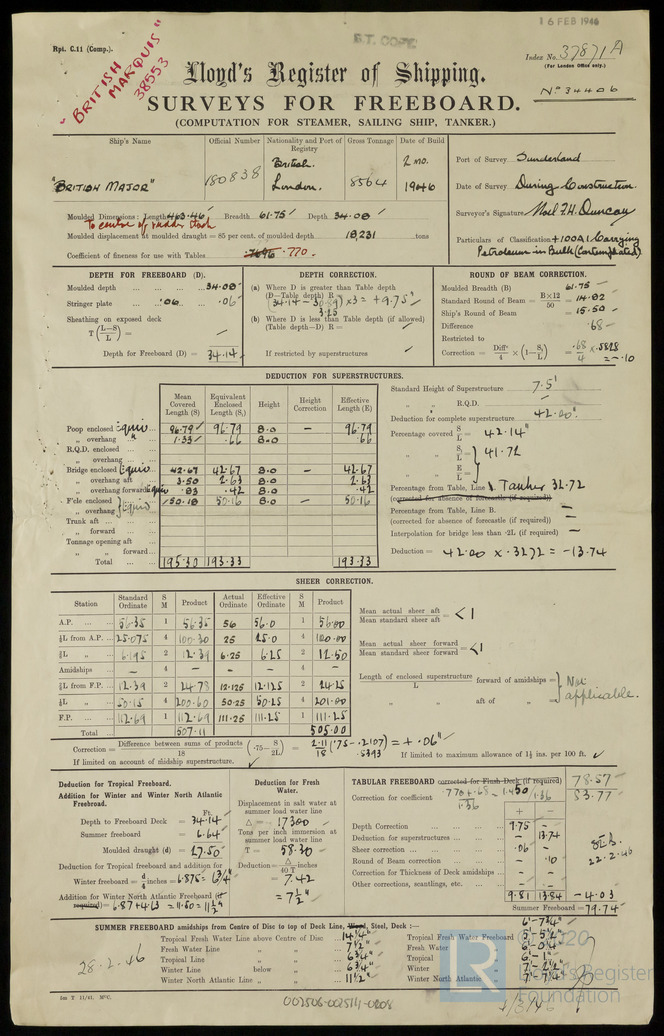 16 FEB 1946
Rpt. C.11 (Comp.).
"BRITISH MARQUIS" 38553
Index No. 37871A
(For London Office only.)
Lloyd's Register of Shipping.
No 34406
SURVEYS FOR FREEBOARD.
(COMPUTATION FOR STEAMER, SAILING SHIP, TANKER.)
Ship's Name Official Number Nationality and Port of Registry Gross Tonnage Date of Build
"BRITISH MAJOR" 180838 British. London. 8564 2 mo. 1946
Port of Survey Sunderland
Date of Survey During Construction
Surveyor's Signature Noel F.H. Duncan
Particulars of Classification +100A1 Carrying Petroleum in Bulk (Contemplated)
Moulded Dimensions: Length 463.46' Breadth 61.75' Depth 34.08'
To centre of rudder stock
Moulded displacement at moulded draught = 85 per cent. of moulded depth 18,231 tons
Coefficient of fineness for use with Tables .7696 .770
DEPTH FOR FREEBOARD (D).
Moulded depth ... ... ... 34.08'
Stringer plate ... .06 ... .06'
Sheathing on exposed deck
T (L-S/L) =
Depth for Freeboard (D) = 34.14
DEPTH CORRECTION.
(a) Where D is greater than Table depth
(D-Table depth) R =
(34.14 - 30.89) x 3 = + 9.75"
3.25
(b) Where D is less than Table depth (if allowed)
(Table depth-D) R =
If restricted by superstructures
ROUND OF BEAM CORRECTION.
Moulded Breadth (B) 61.75
Standard Round of Beam = B×12/50 = 14.82
Ship's Round of Beam = 15.50
Difference .68
Restricted to
Correction = Diffce/4 × (1-S₁/L) = .68/4 x .5828 = -.10
DEDUCTION FOR SUPERSTRUCTURES.
Mean Covered Length (S) Equivalent Enclosed Length (S₁) Height Height Correction Effective Length (E)
Poop enclosed Equiv ... 96.79 96.79 8.0 - 96.79
„ overhang " ... 1.33 .66 8.0 .66
R.Q.D. enclosed ...
„ overhang ...
Bridge enclosed Equiv ... 42.67 42.67 8.0 - 42.67
„ overhang aft ... 3.50 2.63 8.0 2.63
„ overhang forward Equiv .83 .42 8.0 .42
F'cle enclosed Equiv ... 50.18 50.16 8.0 - 50.16
„ overhang
Trunk aft ...
„ forward ...
Tonnage opening aft ...
„ „ forward ...
Total ... 195.30 193.33 193.33
Standard Height of Superstructure 7.5'
„ „ R.Q.D. -
Deduction for complete superstructure 42.00"
Percentage covered S/L = 42.14"
„ „ S₁/L = 41.72
„ „ E/L =
Percentage from Table, Line Tanker 32.72
(corrected for absence of forecastle (if required))
Percentage from Table, Line B.
(corrected for absence of forecastle (if required))
Interpolation for bridge less than .2L (if required)
Deduction = 42.00 x .3272 = -13.74
SHEER CORRECTION.
Station Standard Ordinate S M Product Actual Ordinate Effective Ordinate S M Product
A.P. ... 56.35 1 56.35 56 56.0 1 56.00
⅙L from A.P. ... 25.075 4 100.30 25 25.0 4 100.00
⅓L „ 6.195 2 12.39 6.25 6.25 2 12.50
Amidships ... - 4 - - - 4 -
⅓L from F.P. ... 12.39 2 24.78 12.125 12.125 2 24.25
⅙L „ 50.15 4 200.60 50.25 50.25 4 201.00
F.P. ... 112.69 1 112.69 111.25 111.25 1 111.25
Total ... 507.11 505.00
Mean actual sheer aft / Mean standard sheer aft = <1
Mean actual sheer forward / Mean standard sheer forward = <1
Length of enclosed superstructure / L forward of amidships =
„ aft of „ =
Not applicable.
Correction = Difference between sums of products / 18 (.75 - S/2L) = 2.11/18 (.75 - .2107) = + .06"
.5393
If limited on account of midship superstructure.
If limited to maximum allowance of 1½ ins. per 100 ft.
Deduction for Tropical Freeboard.
Addition for Winter and Winter North Atlantic Freeboard.
Ft.
Depth to Freeboard Deck = 34.14
Summer freeboard = 6.64
Moulded draught (d) = 27.50
Deduction for Tropical freeboard and addition for
Winter freeboard = d/4 inches = 6.875 = 6¾"
Addition for Winter North Atlantic Freeboard (if required) = 6.87 + 4.63 = 11.50 = 11½"
Deduction for Fresh Water.
Displacement in salt water at summer load water line
Δ = 17300
Tons per inch immersion at summer load water line
T = 58.30
Deduction = Δ/40 T inches
= 7.42
= 7½"
TABULAR FREEBOARD corrected for Flush Deck (if required) 78.57
Correction for coefficient .770 + .68 / 1.36 = 1.450 / 1.36 83.77
+ -
Depth Correction ... 9.75 -
Deduction for superstructures ... - 13.74
Sheer correction ... .06 -
Round of Beam correction ... - .10
Correction for Thickness of Deck amidships ... - -
Other corrections, scantlings, etc. ... - -
9.81 13.84 - 4.03
Summer Freeboard = 79.74
22.2.46
SUMMER FREEBOARD amidships from Centre of Disc to top of Deck Line, Wood, Steel, Deck :— 6'-7¾"
Tropical Fresh Water Line above Centre of Disc ... 14¼" Tropical Fresh Water Freeboard 5'-5½"
Fresh Water Line „ „ ... 7½" Fresh Water „ 6'-0¼"
Tropical Line „ „ ... 6¾" Tropical „ 6'-1"
Winter Line below „ ... 6¾" Winter „ 7'-2½"
Winter North Atlantic Line „ „ ... 11½" Winter North Atlantic „
28.2.46
2m T 11/41. MᶜC.
002506-002514-0208
1/3/46
R
2020
Lloyd's Register
Foundation